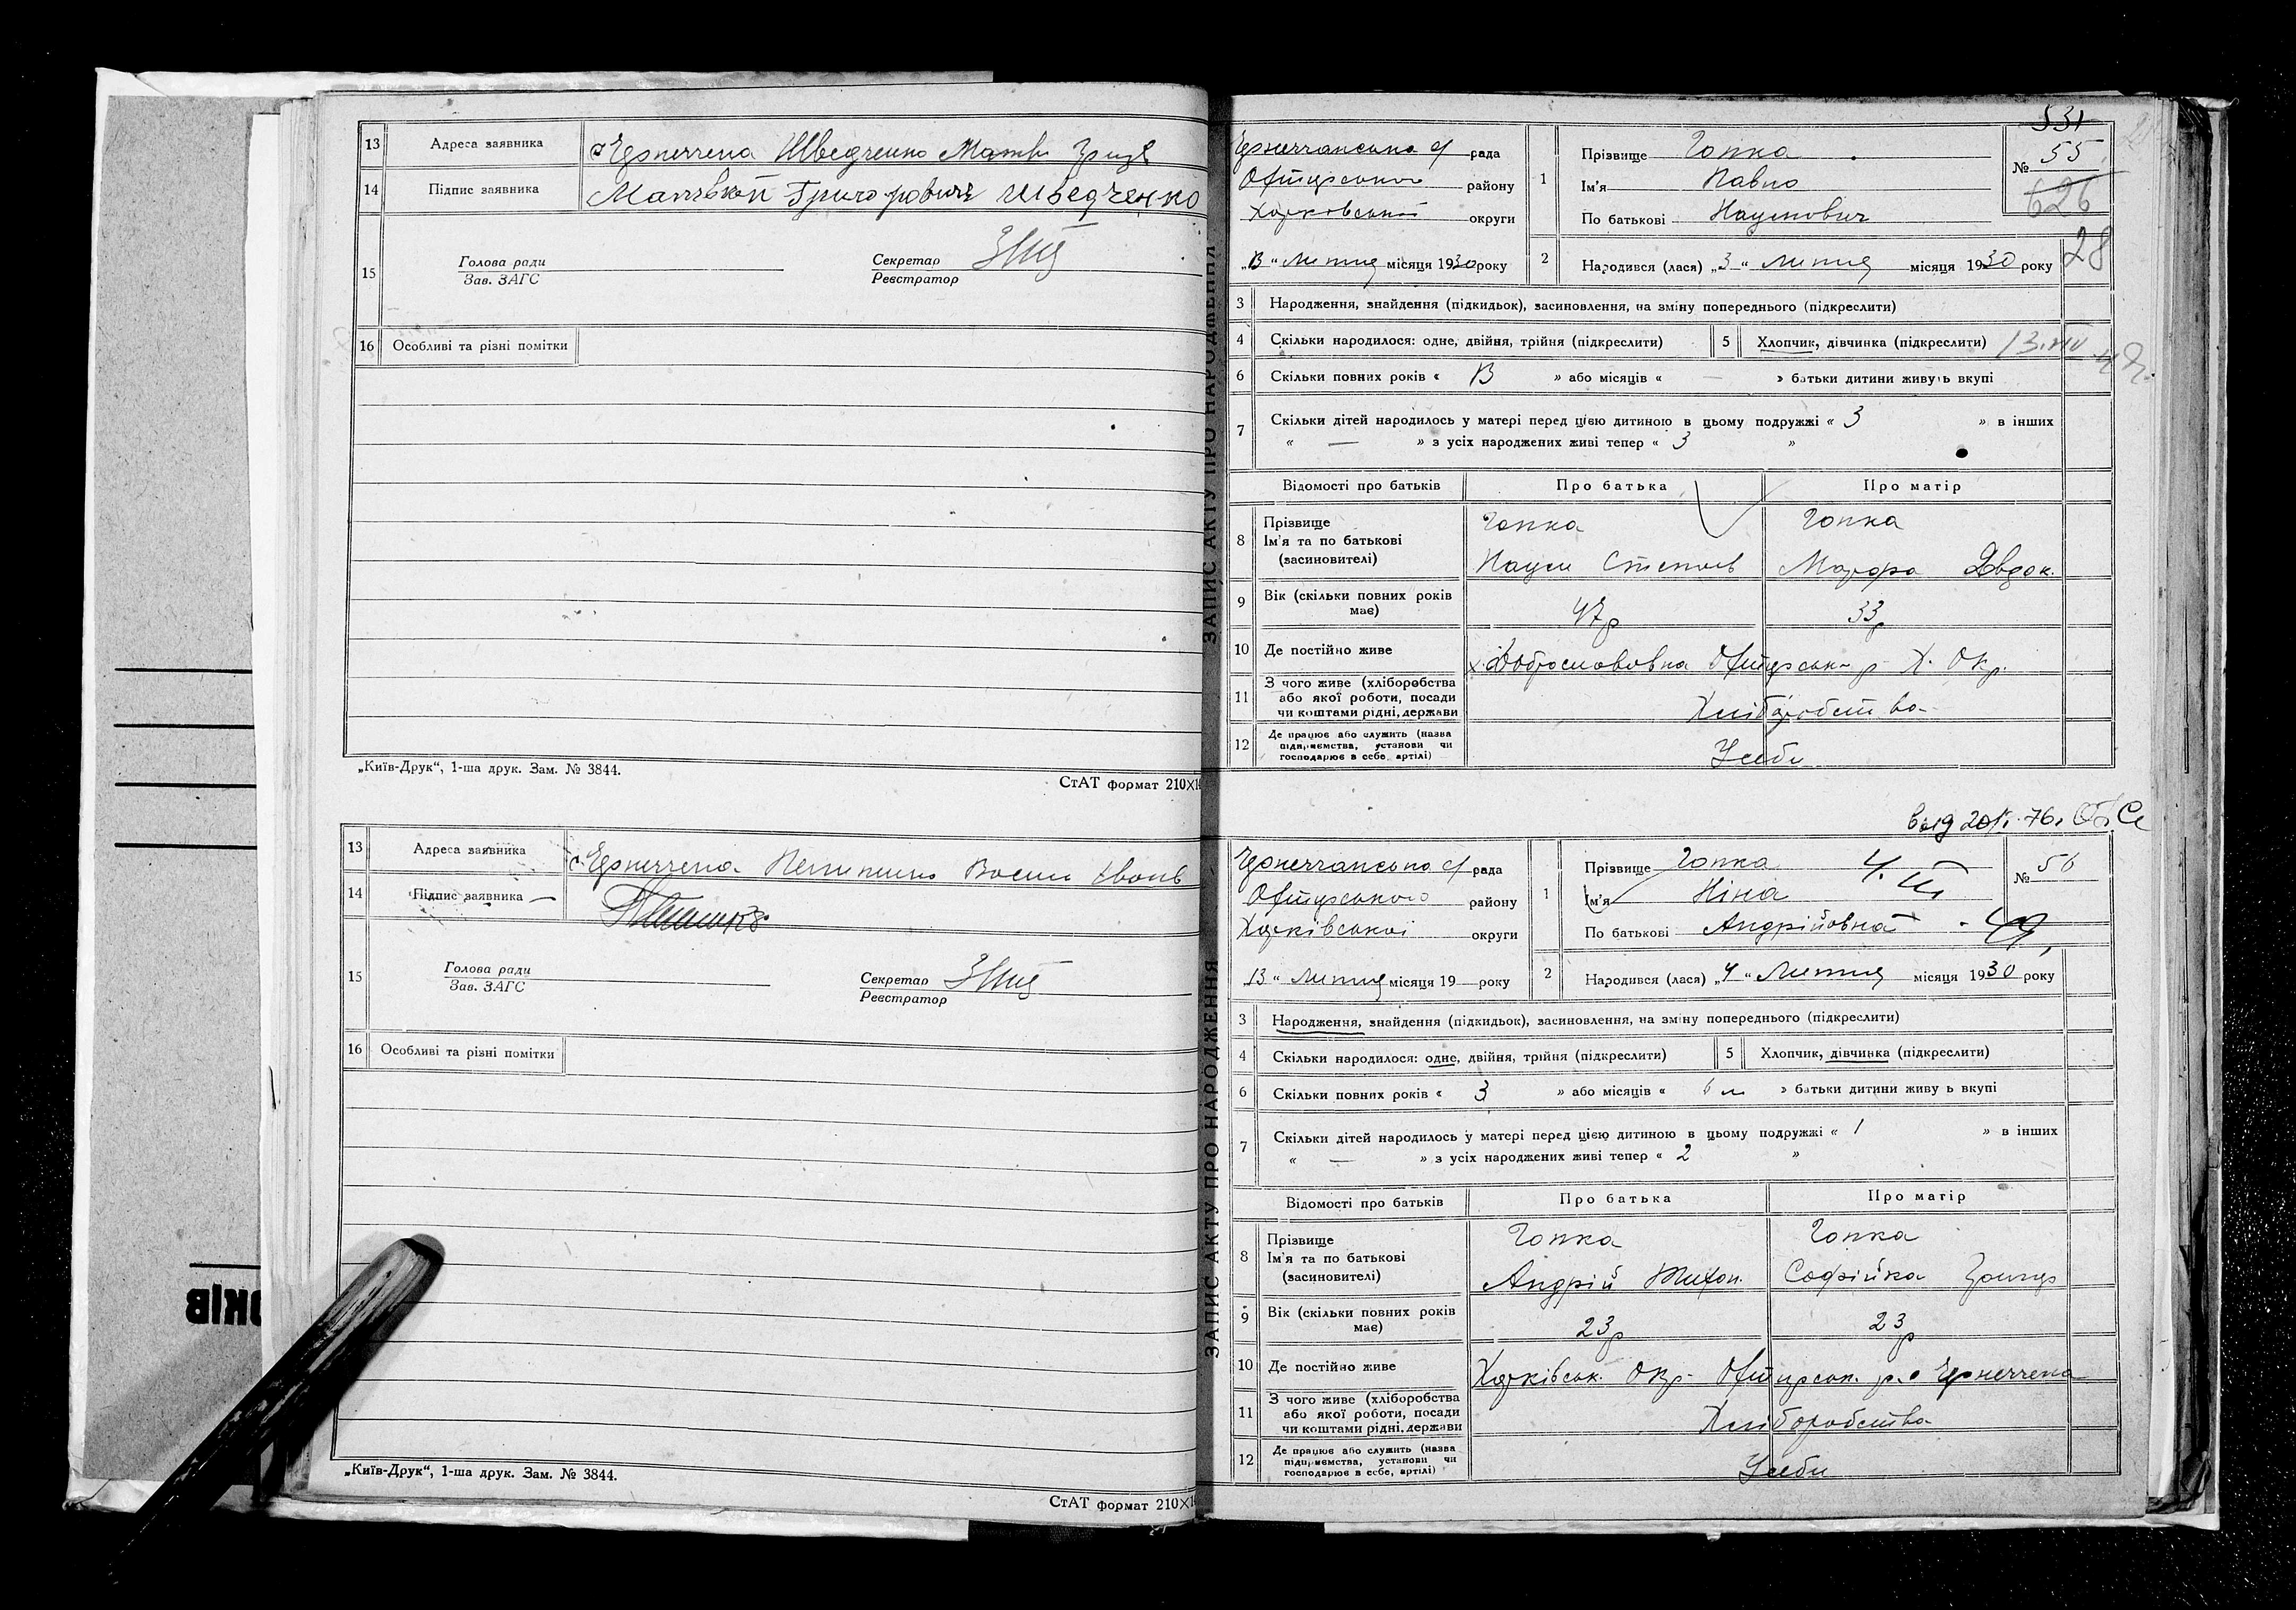 13 Адреса заявника с Чернеччена Шведченко Матв Григ
14 Підпис заявника Матвій Григорович Шведченко
15 Голова ради Секретар
Зав. ЗАГС Реєстратор
16 Особливі та різні помітки
„Київ-Друк“, 1-ша друк. Зам. № 3844.
СтАТ формат 210×1
13 Адреса заявника с. Чернеччена
14 Підпис заявника
15 Голова ради Секретар
Зав. ЗАГС Реєстратор
16 Особливі та різні помітки
„Київ-Друк“, 1-ша друк. Зам. № 3844.
СтАТ формат 210×1
ЗАПИС АКТУ ПРО НАРОДЖЕННЯ
ЗАПИС АКТУ ПРО НАРОДЖЕННЯ
531
Чернеччанська с/ рада 1 Прізвище Гопка № 55
626
Охтирського району Ім'я Павло
Харковської округи По батькові Наумович
28
„13“ Липня місяця 1930 року 2 Народився (лася) „3“ Липня місяця 1930 року
3 Народження, знайдення (підкидьок), засиновлення, на зміну попереднього (підкреслити)
4 Скільки народилося: одне, двійня, трійня (підкреслити) 5 Хлопчик, дівчинка (підкреслити)
6 Скільки повних років « 13 » або місяців « — » батьки дитини живуть вкупі
7 Скільки дітей народилось у матері перед цією дитиною в цьому подружжі « 3 » в інших
« — » з усіх народжених живі тепер « 3 »
Відомості про батьків Про батька Про матір
8 Прізвище Гопка Гопка
Ім'я та по батькові
(засиновителі) Наум Степов Марфа Явдок.
9 Вік (скільки повних років має) 47р 33р
10 Де постійно живе х. Доброславовка Охтирськ р Х. Окр.
11 З чого живе (хліборобства
або якої роботи, посади
чи коштами рідні, держави Хліборобство
12 Де працює або служить (назва
підприємства, установи чи
господарює в себе, артілі) У себе
Чернеччанська с/ рада 1 Прізвище Гопка № 56
Охтирського району Ім'я Ніна
Харківської округи По батькові Андрійовна
13 “ Липня місяця 19 року 2 Народився (лася) „4“ Липня місяця 1930 року
3 Народження, знайдення (підкидьок), засиновлення, на зміну попереднього (підкреслити)
4 Скільки народилося: одне, двійня, трійня (підкреслити) 5 Хлопчик, дівчинка (підкреслити)
6 Скільки повних років « 3 » або місяців « 6 м » батьки дитини живуть вкупі
7 Скільки дітей народилось у матері перед цією дитиною в цьому подружжі « 1 » в інших
« — » з усіх народжених живі тепер « 2 »
Відомості про батьків Про батька Про матір
8 Прізвище Гопка Гопка
Ім'я та по батькові
(засиновителі) Андрій Тихон. Софійка Григор
9 Вік (скільки повних років має) 23р 23р
10 Де постійно живе Харківськ. Окр. Охтирськ. р. с Чернеччена
11 З чого живе (хліборобства
або якої роботи, посади
чи коштами рідні, держави Хліборобства
12 Де працює або служить (назва
підприємства, установи чи
господарює в себе, артілі) У себе